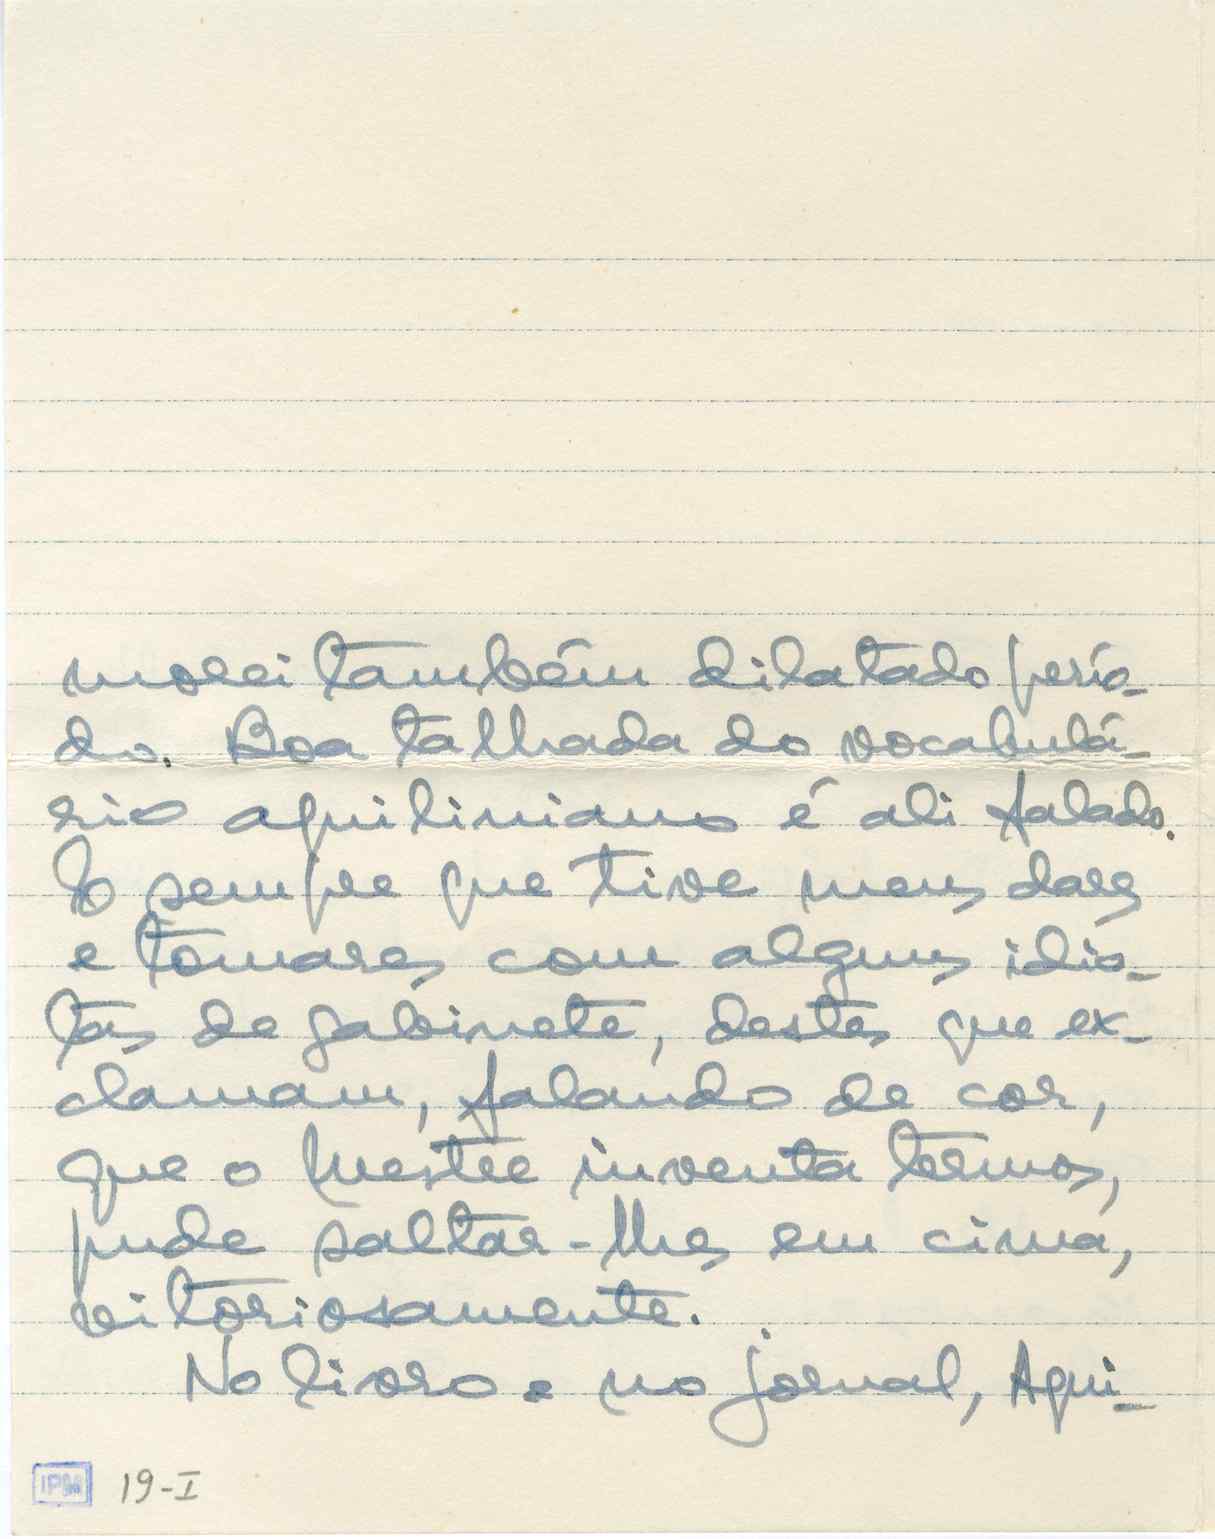 morei também dilatado perío-
do. Boa talhada do vocabulá-
rio aquiliniano é ali falado.
E sempre que tive meus dares
e tomares com alguns idio-
tas de gabinete, destes que ex-
clamam, falando de cor,
que o Mestre inventa termos,
pude saltar-lhes em cima,
vitoriosamente.
No livro e no jornal, Aqui-
IPM 19-I